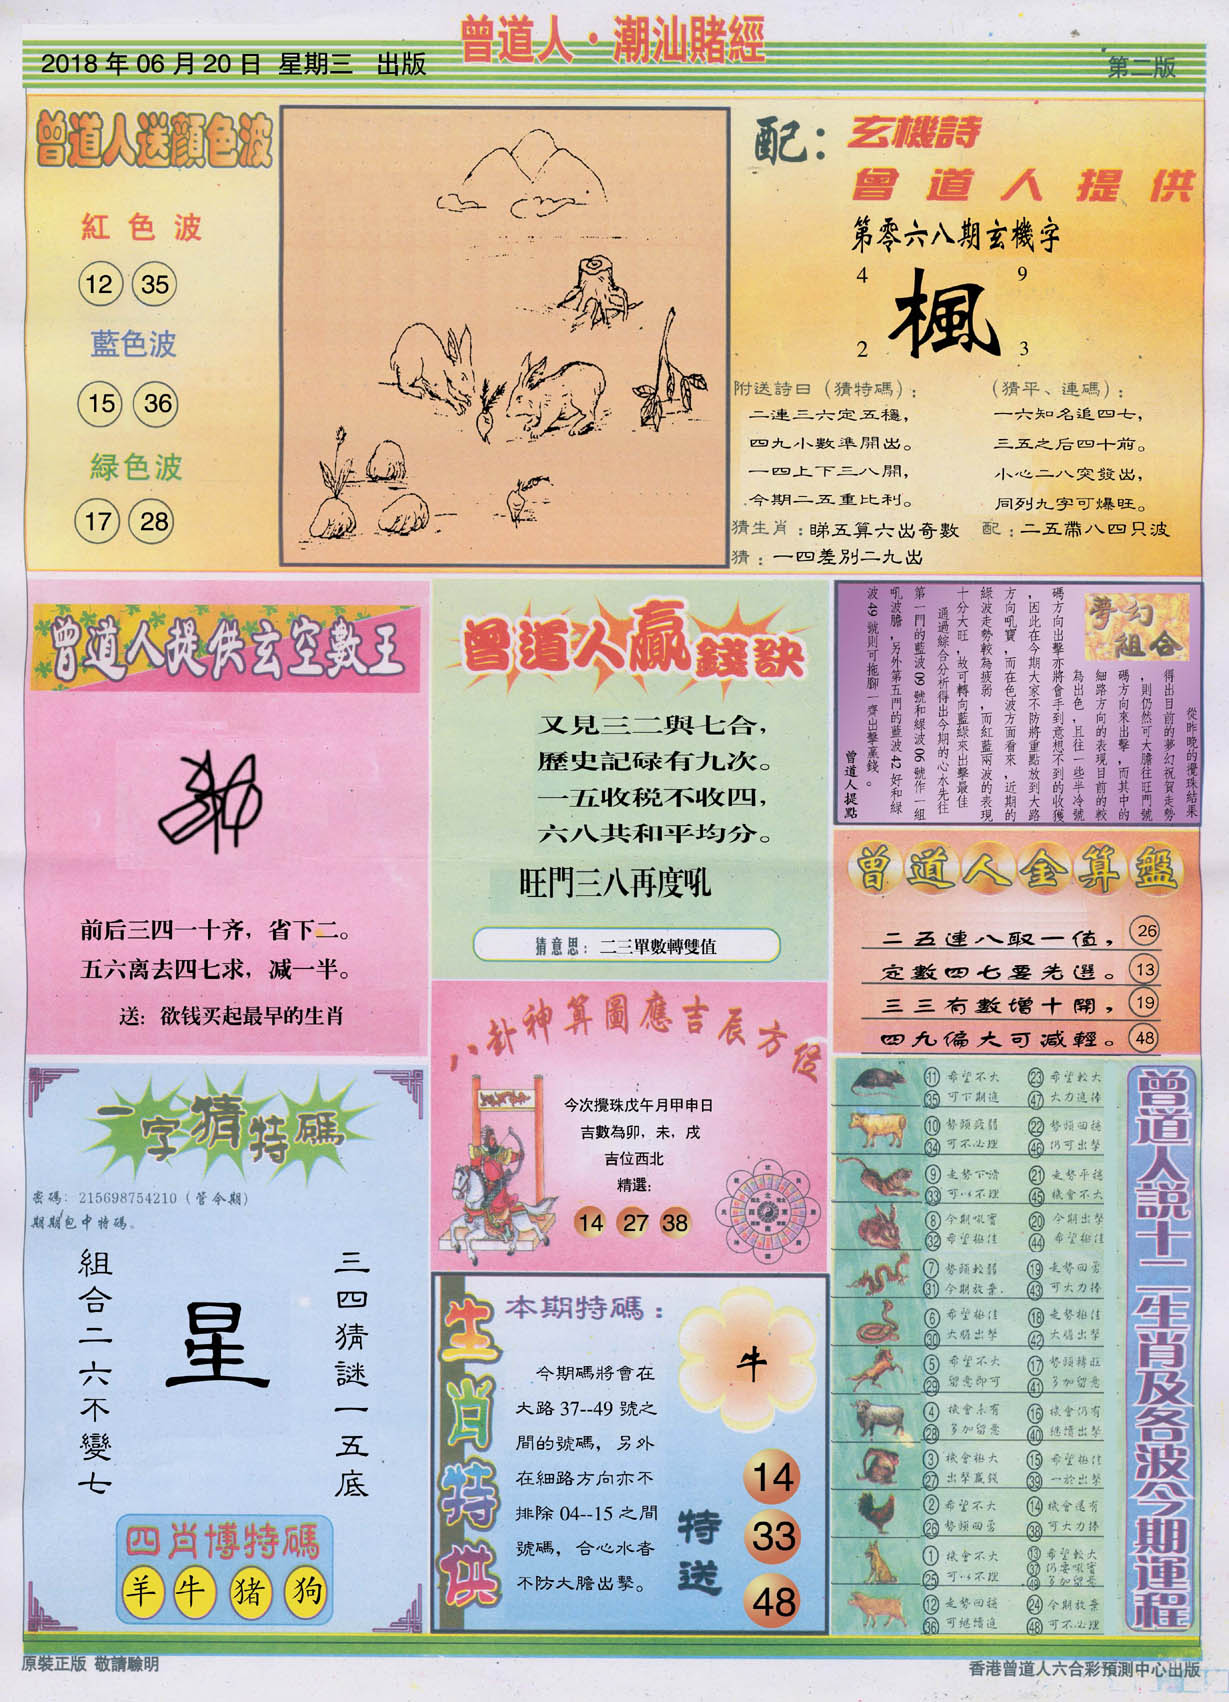 曾道人·潮汕賭經
2018 年 06 月 20 日 星期三 出版
第二版
曾道人送顏色波
紅色波
12 35
藍色波
15 36
緑色波
17 28
配：
玄機詩
曾道人提供
第零六八期玄機字
4 9
楓
2 3
附送詩曰（猜特碼）：
二連三六定五穩，
四九小數準開出。
一四上下三八開，
今期二五重比利。
（猜平、連碼）：
一六知名追四七，
三五之后四十前。
小心二八突發出，
同列九字可爆旺。
猜生肖：睇五算六出奇數
配：二五帶八四只波
猜：一四差別二九出
曾道人提供玄空數王
前后三四一十齐，省下二。
五六离去四七求，减一半。
送：欲钱买起最早的生肖
曾道人贏錢訣
又見三二與七合，
歷史記碌有九次。
一五收税不收四，
六八共和平均分。
旺門三八再度吼
猜意思：二三單數轉雙值
夢幻組合
從昨晚的攪珠結果
得出目前的夢幻祝賀走勢
，則仍然可大膽往旺門號
碼方向來出擊，而其中的
細路方向的表現目前的較
為出色，且往一些半冷號
碼方向出擊亦將會手到意想不到的收獲
，因此在今期大家不防將重點放到大路
方向吼寶，而在色波方面看來，近期的
綠波走勢較為疲弱，而紅藍兩波的表現
十分大旺，故可轉向藍綠來出擊最佳
通過綜合分析得出今期的心水先往
第一門的藍波 09 號和綠波 06 號作一組
吼波膽，另外第五門的藍波 42 好和綠
波 49 號則可拖腳一齊出擊贏錢。
曾道人提點
曾道人金算盤
二五連八取一值， 26
定數四七要先選。 13
三三有數增十開， 19
四九偏大可減輕。 48
八卦神算圖應吉辰方位
今次攪珠戊午月甲申日
吉數為卯，未，戌
吉位西北
精選：
14 27 38
一字猜特碼
密碼：215698754210（管令期）
期期包中特碼。
三四猜謎一五底
星
組合二六不變七
四肖博特碼
羊 牛 猪 狗
生肖特供
本期特碼：
今期碼將會在
大路 37--49 號之
間的號碼，另外
在細路方向亦不
排除 04--15 之間
號碼，合心水者
不防大膽出擊。
牛
特送
14
33
48
曾道人説十二生肖及各波今期運程
11 希望不大 23 希望較大
35 可下期進 47 大力進捧
10 勢頭疲弱 22 勢頭回穩
34 可不必理 46 仍可出擊
9 走勢下滑 21 走勢平穩
33 可以不理 45 機會不大
8 今期吼寶 20 今期出擊
32 希望極佳 44 希望極佳
7 勢頭較弱 19 走勢回勇
31 今期放棄 43 可大力捧
6 希望極佳 18 走勢極佳
30 大膽出擊 42 大膽出擊
5 希望不大 17 勢頭轉旺
29 留意即可 41 多加留意
4 機會未有 16 機會仍有
28 多加留意 40 繼續出擊
3 機會極大 15 希望極佳
27 出擊贏錢 39 一於出擊
2 希望不大 14 機會還有
26 勢頭回勇 38 可大力捧
1 機會不大 13 希望較大
25 可以不理 37 仍要吼實
49 多加留意
12 走勢回穩 24 今期放棄
36 可繼續進 48 可不必理
原裝正版 敬請驗明
香港曾道人六合彩預測中心出版